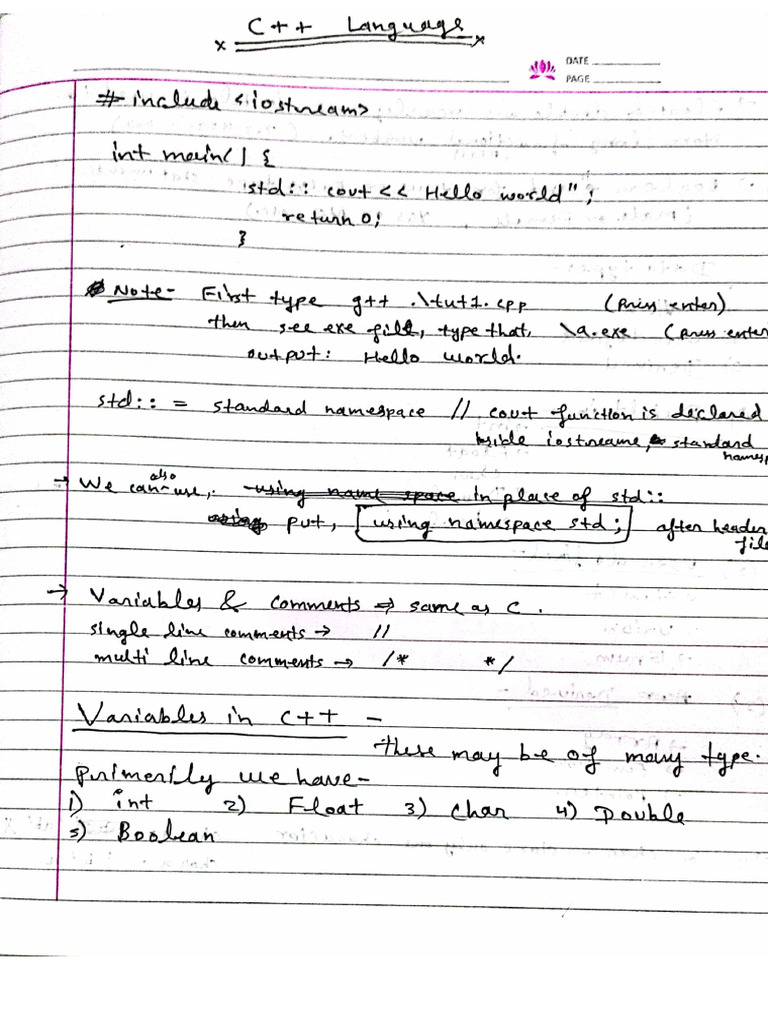 C++ Language
DATE
PAGE
# include <iostream>
int main() {
std:: cout << Hello world";
return 0;
}
Note- First type g++ .\tut1.cpp (press enter)
then see exe file, type that, \a.exe (press enter
output: Hello world.
std:: = standard namespace // cout function is declared
iostreame, standard
namesp
→ We can also use, using name space in place of std::
put, using namespace std; after header
file
→ Variables & comments ⇒ same as C.
single line comments → //
multi line comments → /* */
Variables in C++ -
these may be of many type.
primerily we have-
1) int 2) Float 3) Char 4) Double
5) Boolean